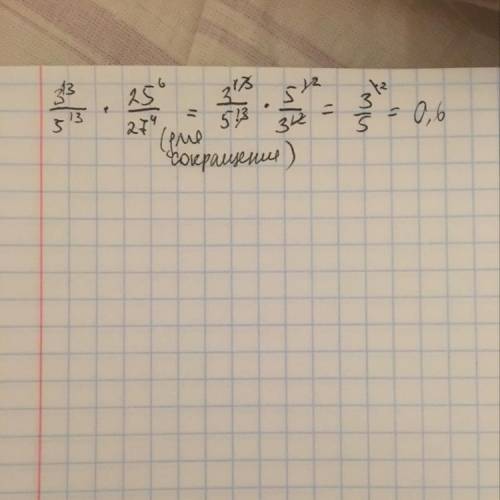 3^13/5^13 · 25^6/27^4 = 3^13/5^13 · 5^12/3^12 = 3/5 = 0,6
(для
сокращения)